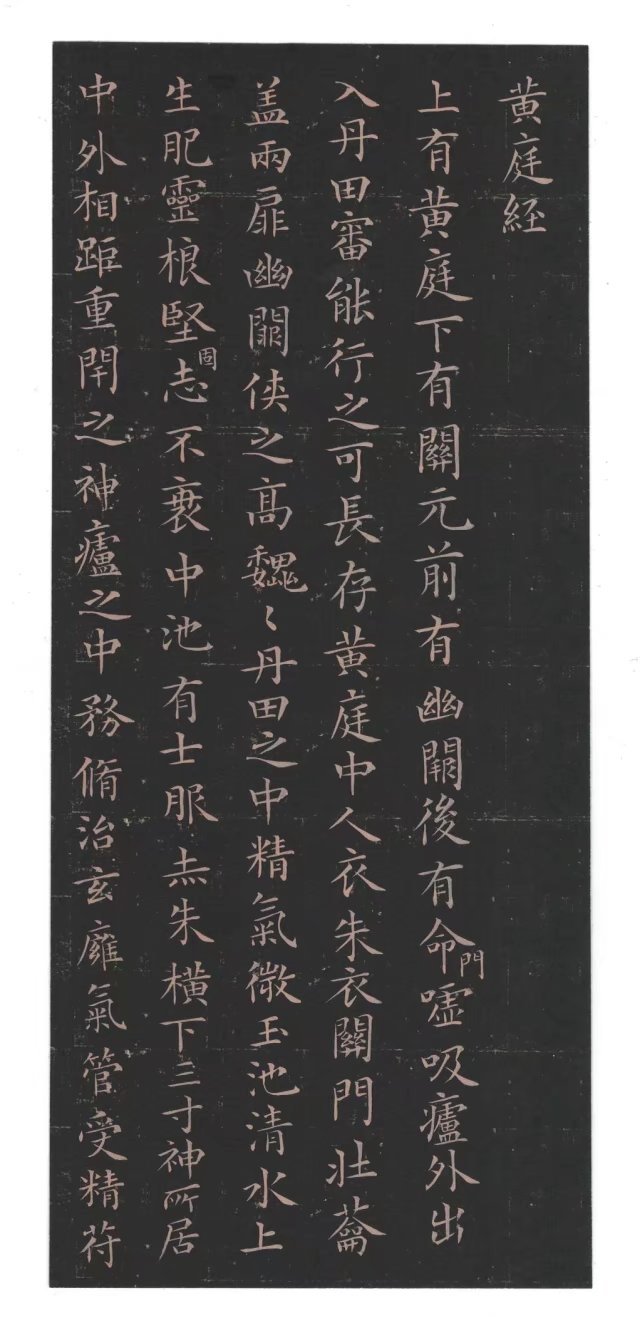 黄庭經
上有黄庭下有關元前有幽闕後有命門嘘吸廬外出
入丹田審能行之可長存黄庭中人衣朱衣關門壮蘥
盖兩扉幽闕俠之高魏〻丹田之中精氣微玉池清水上
生肥靈根堅固志不衰中池有士服赤朱横下三寸神所居
中外相距重閇之神廬之中務脩治玄廱氣管受精苻